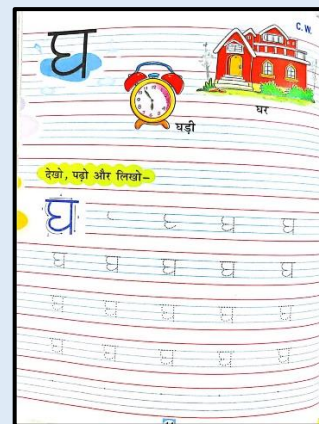 C.W.
घ
घर
घड़ी
देखो, पढ़ो और लिखो–
घ घ घ घ
घ घ घ घ घ
घ घ घ घ घ
घ घ घ घ घ